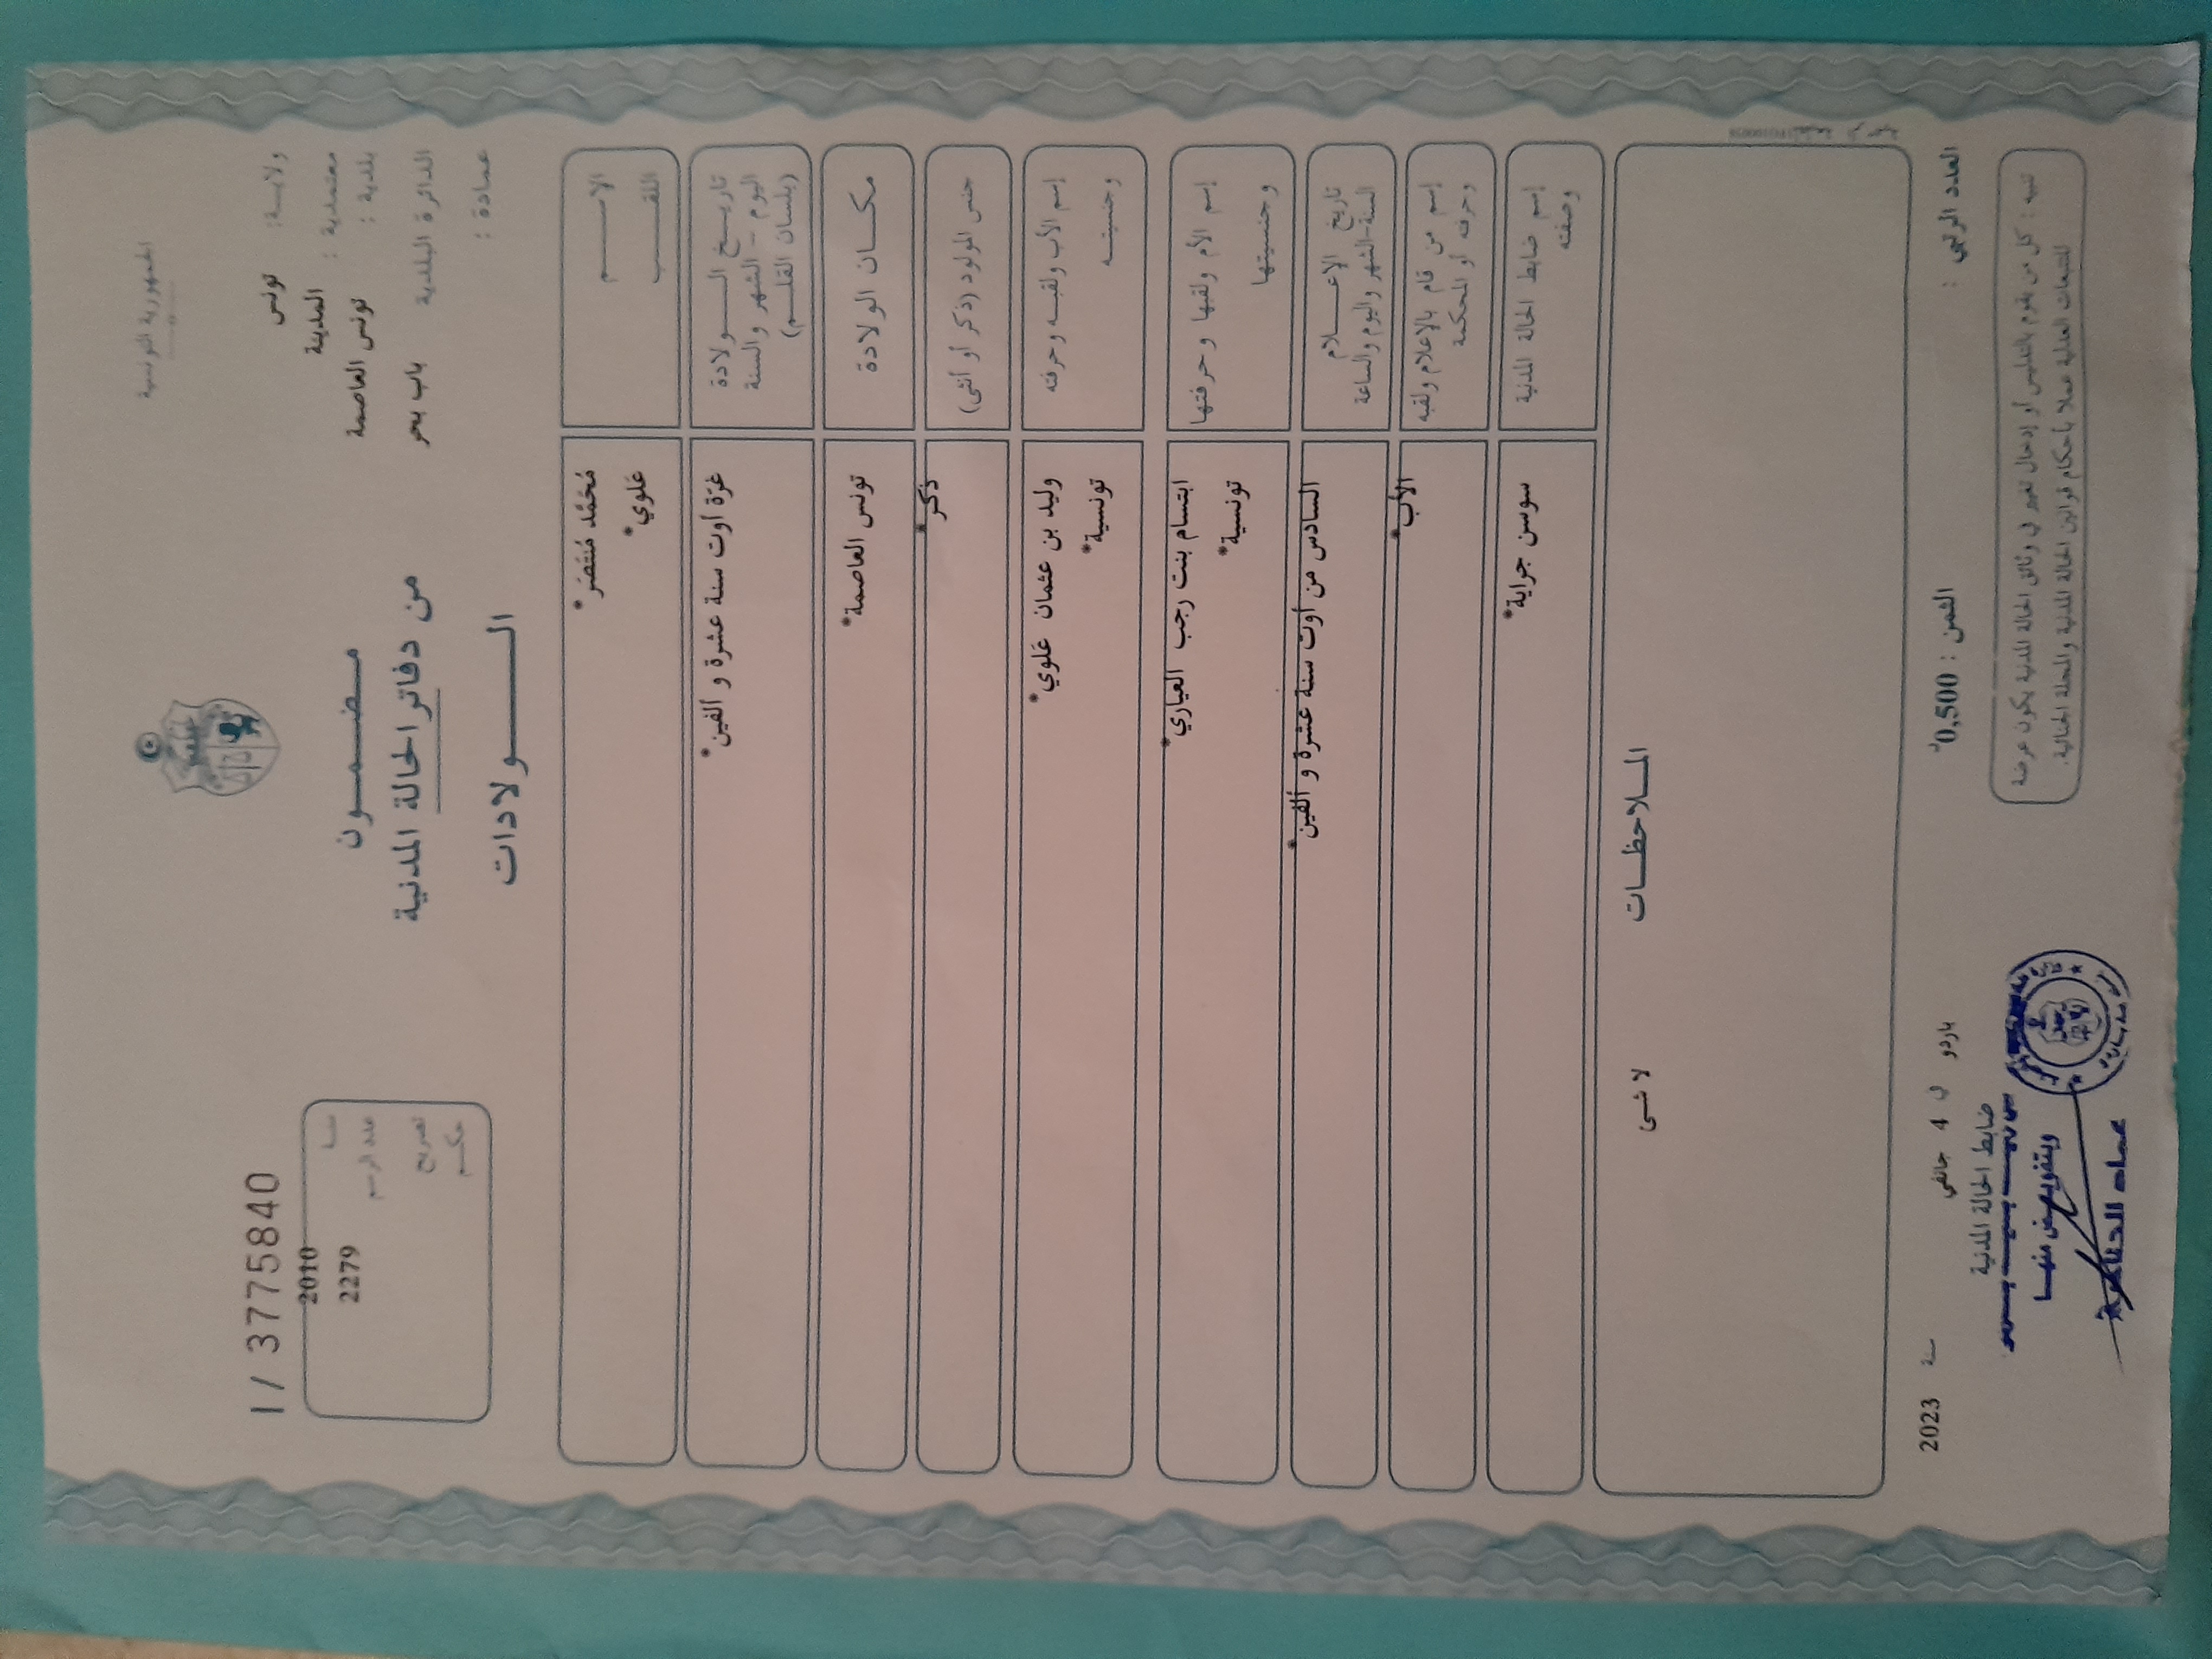 الجمهورية التونسية
ولايـــة : تونس
معتمدية : المدينة
بلدية : تونس العاصمة
الدائرة البلدية باب بحر
عمادة :
مـــضـــمـــــون
من دفاتر الحالة المدنية
الـــــــولادات
I / 3775840
2010
عدد الرسم 2279
تصريح
حكــم
الاســـــم مُحَمَّد مُنتَصَر*
اللقـــــب عَلوي*
تاريـــخ الـــــولادة غرّة أوت سنة عشرة و ألفين*
اليوم – الشهر والسنة
(بلسان القلـــم)
مكـــان الولادة تونس العاصمة*
جنس المولود (ذكر أو أنثى) ذكر*
إسم الأب ولقبـــه وحرفته وليد بن عثمان عَلوي*
وجنسيتـــه تونسية*
إسم الأم ولقبها وحرفتها ابتسام بنت رجب العياري*
وجنسيتها تونسية*
تاريخ الإعــــلام السادس من أوت سنة عشرة و ألفين*
السنة-الشهر واليوم والساعة
إسم من قام بالإعلام ولقبه الأب*
وحرفته أو المحكمة
إسم ضابط الحالة المدنية سوسن جراية*
وصفته
المــلاحظــات
لا شىء
العدد الرتبي :
الثمن : 0,500د
باردو في 4 جانفي سنة 2023
ضابط الحالة المدنية
وبتفويض منها
تنبيه : كل من يقوم بالتدليس أو إدخال تغيير في وثائق الحالة المدنية يكون عرضة
للتتبعات العدلية عملا بأحكام قوانين الحالة المدنية والمجلة الجنائية.